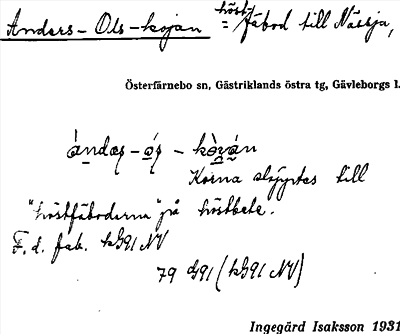 Anders-Ols-kojan höst- fäbod till Nässja,
Österfärnebo sn, Gästriklands östra tg, Gävleborgs l.
Korna släpptes till
"höstfäbodarna" på höstbete.
F.d. fäb. kG91 NV
79 G91 (kG91 NV)
Ingegärd Isaksson 1931